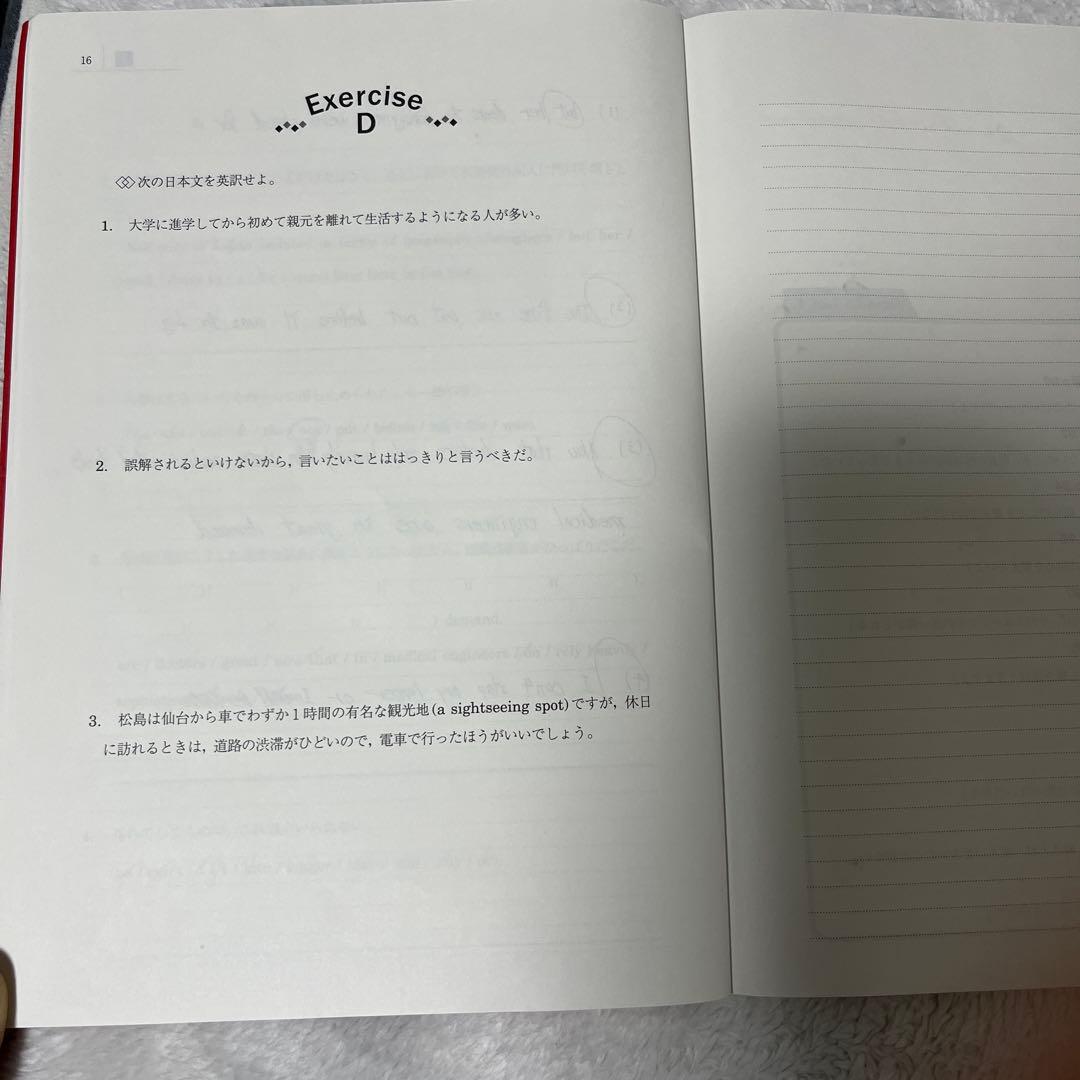 16
Exercise
D
次の日本文を英訳せよ。
1. 大学に進学してから初めて親元を離れて生活するようになる人が多い。
2. 誤解されるといけないから, 言いたいことははっきりと言うべきだ。
3. 松島は仙台から車でわずか1時間の有名な観光地(a sightseeing spot)ですが, 休日
に訪れるときは, 道路の渋滞がひどいので, 電車で行ったほうがいいでしょう。